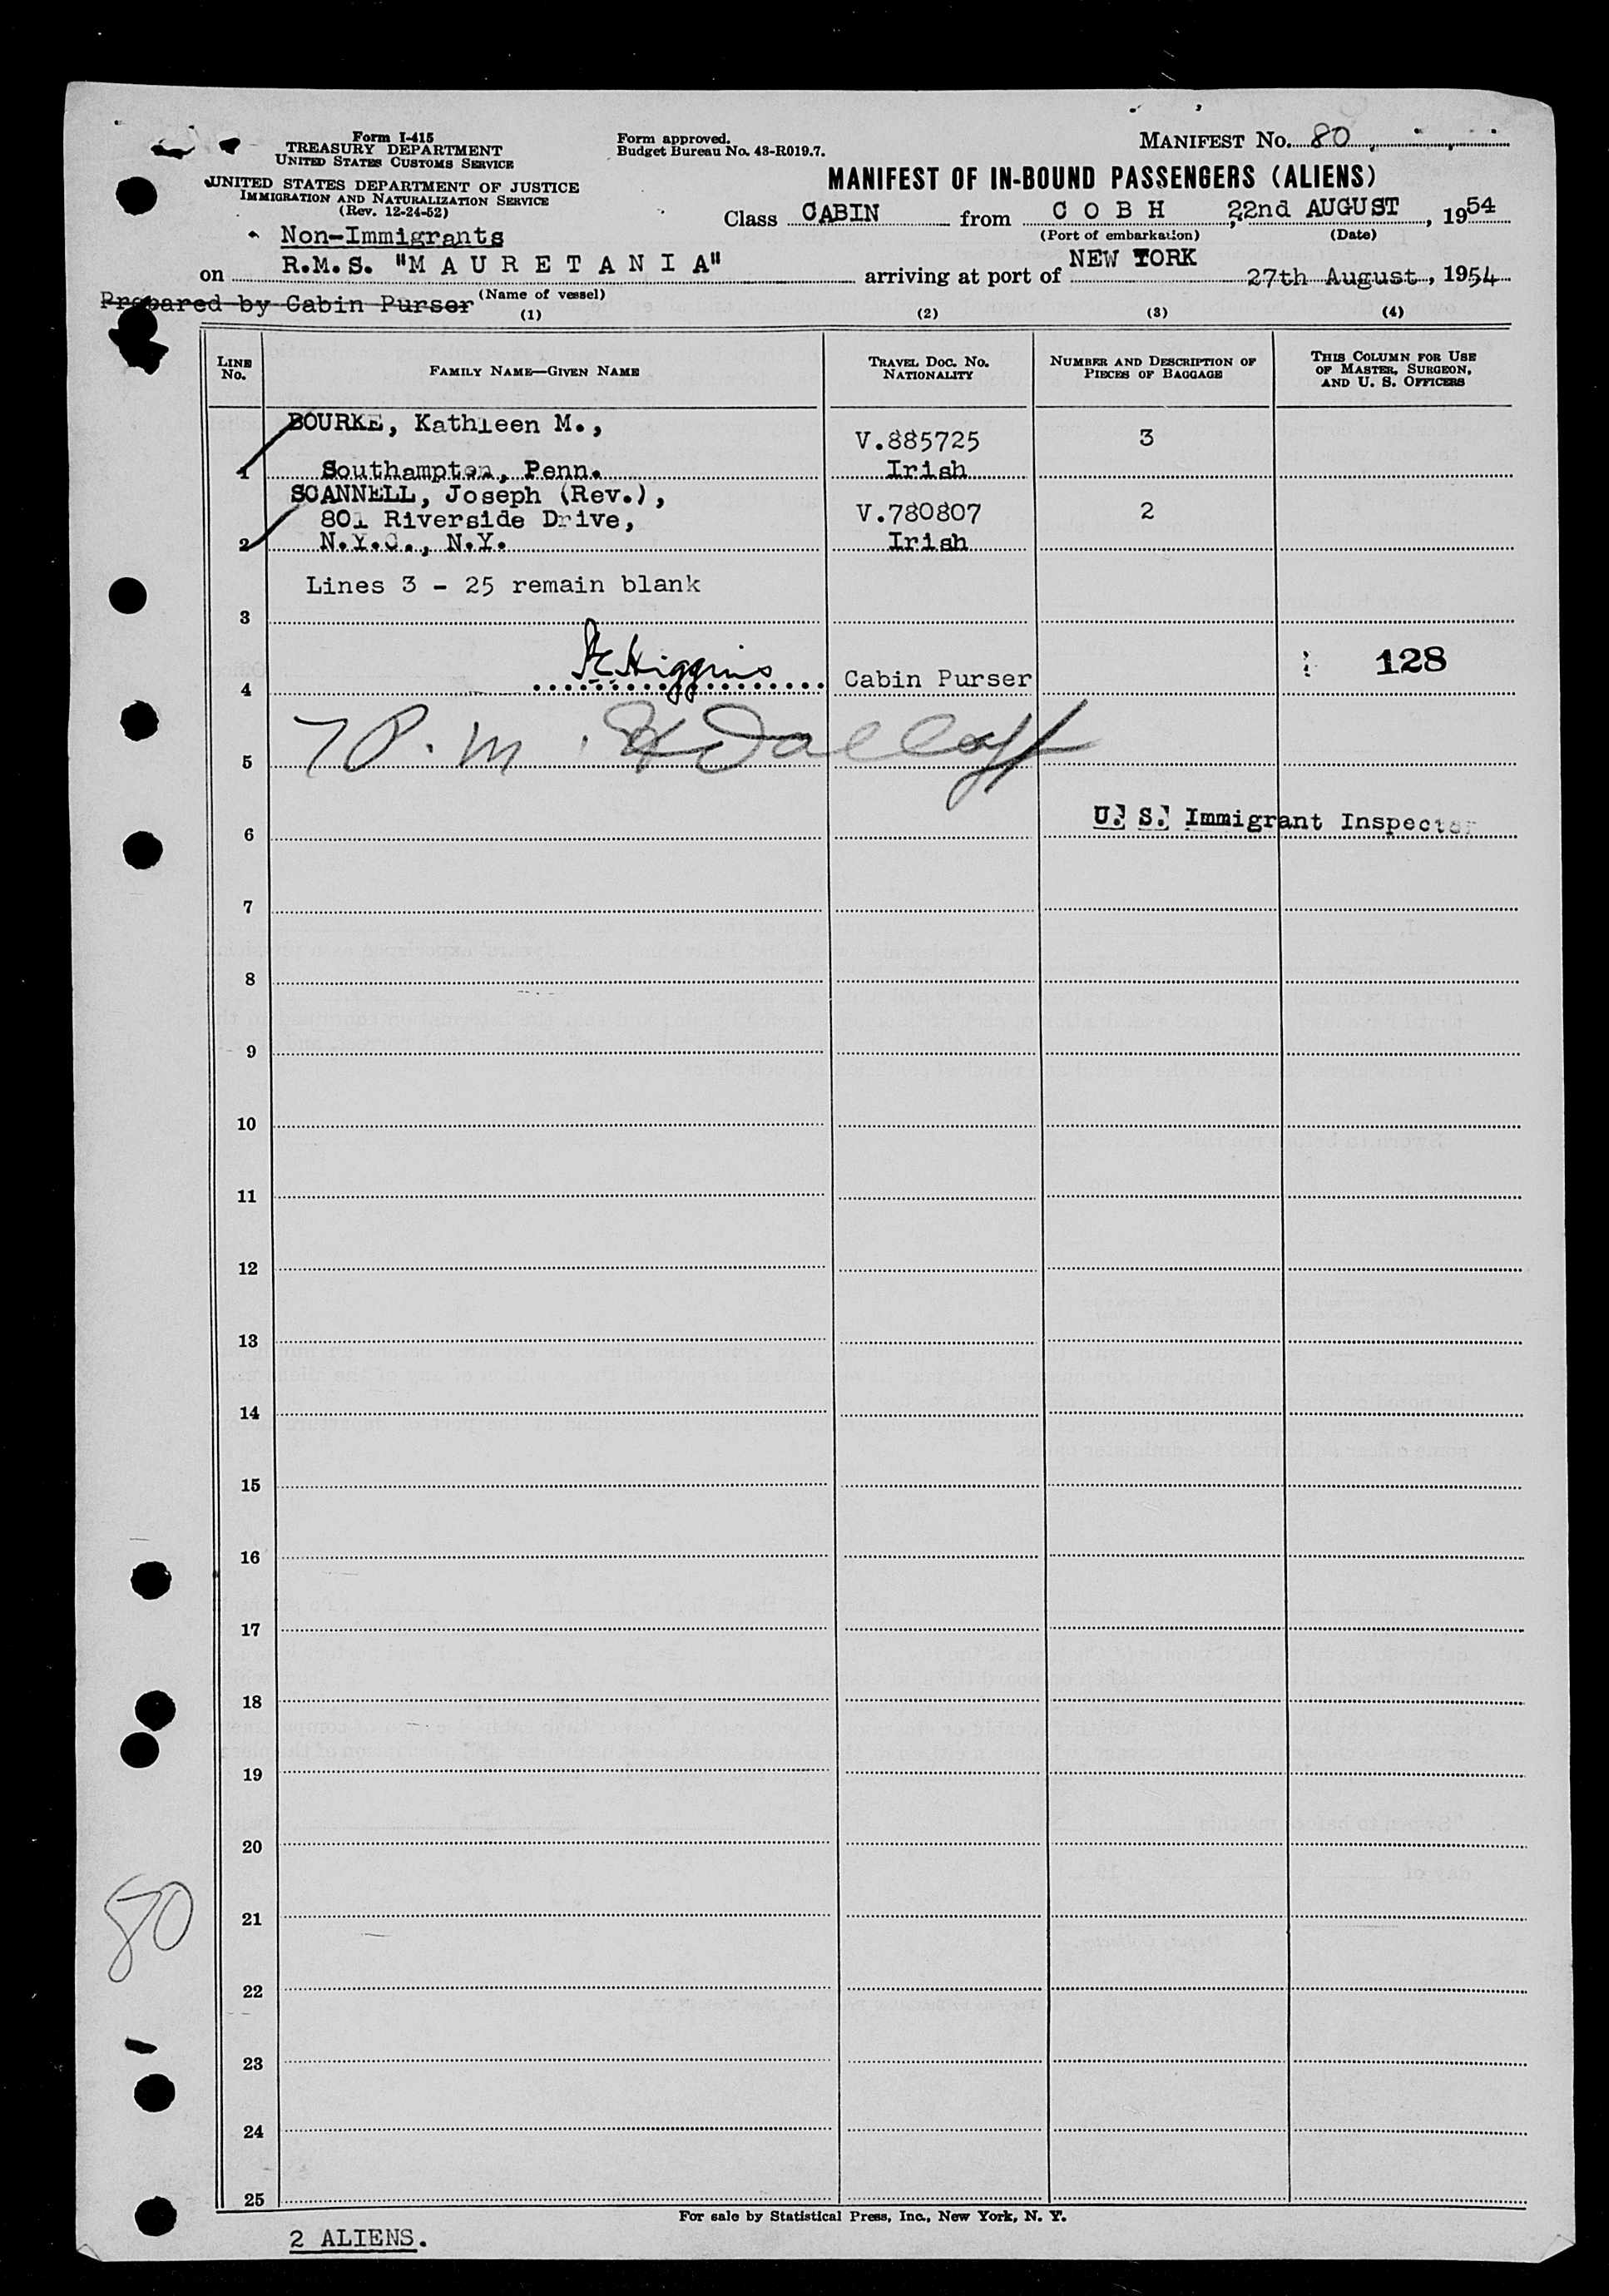 Form I-415
TREASURY DEPARTMENT
UNITED STATES CUSTOMS SERVICE
UNITED STATES DEPARTMENT OF JUSTICE
IMMIGRATION AND NATURALIZATION SERVICE
(Rev. 12-24-52)
Form approved.
Budget Bureau No. 43-R019.7.
MANIFEST No. 80
MANIFEST OF IN-BOUND PASSENGERS (ALIENS)
Class CABIN from C O B H, 22nd AUGUST, 1954
(Port of embarkation) (Date)
Non-Immigrants
on R.M.S. "M A U R E T A N I A" arriving at port of NEW YORK 27th August, 1954
Prepared by Cabin Purser (Name of vessel)
(1) (2) (3) (4)
LINE No. FAMILY NAME—GIVEN NAME TRAVEL DOC. No. NATIONALITY NUMBER AND DESCRIPTION OF PIECES OF BAGGAGE THIS COLUMN FOR USE OF MASTER, SURGEON, AND U. S. OFFICERS
BOURKE, Kathleen M., V.885725 3
1 Southampton, Penn. Irish
SCANNELL, Joseph (Rev.),
801 Riverside Drive, V.780807 2
2 N.Y.C., N.Y. Irish
Lines 3 - 25 remain blank
3
4 Higgins Cabin Purser 128
5 7 P.m.
U. S. Immigrant Inspector
6
7
8
9
10
11
12
13
14
15
16
17
18
19
20
21
80
22
23
24
25
For sale by Statistical Press, Inc., New York, N. Y.
2 ALIENS.